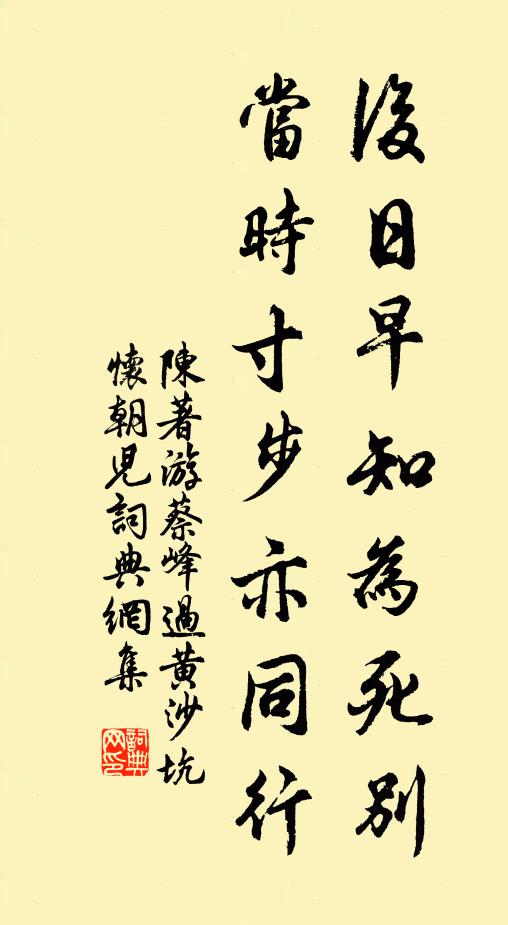 後日早知為死別
當時寸步亦同行
陳著游蔡峰過黃沙坑
懷朝兒詞典網集
詞典網印